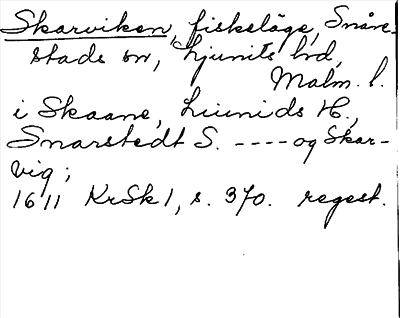 Skarviken, fiskeläge, Snåre-
stads sn, Ljunits hd,
Malm. l.
i Skaane, Liunids H.,
Snarstedt S. ---- og Skar-
vig;
1611 KrSk 1, s. 370. regest.